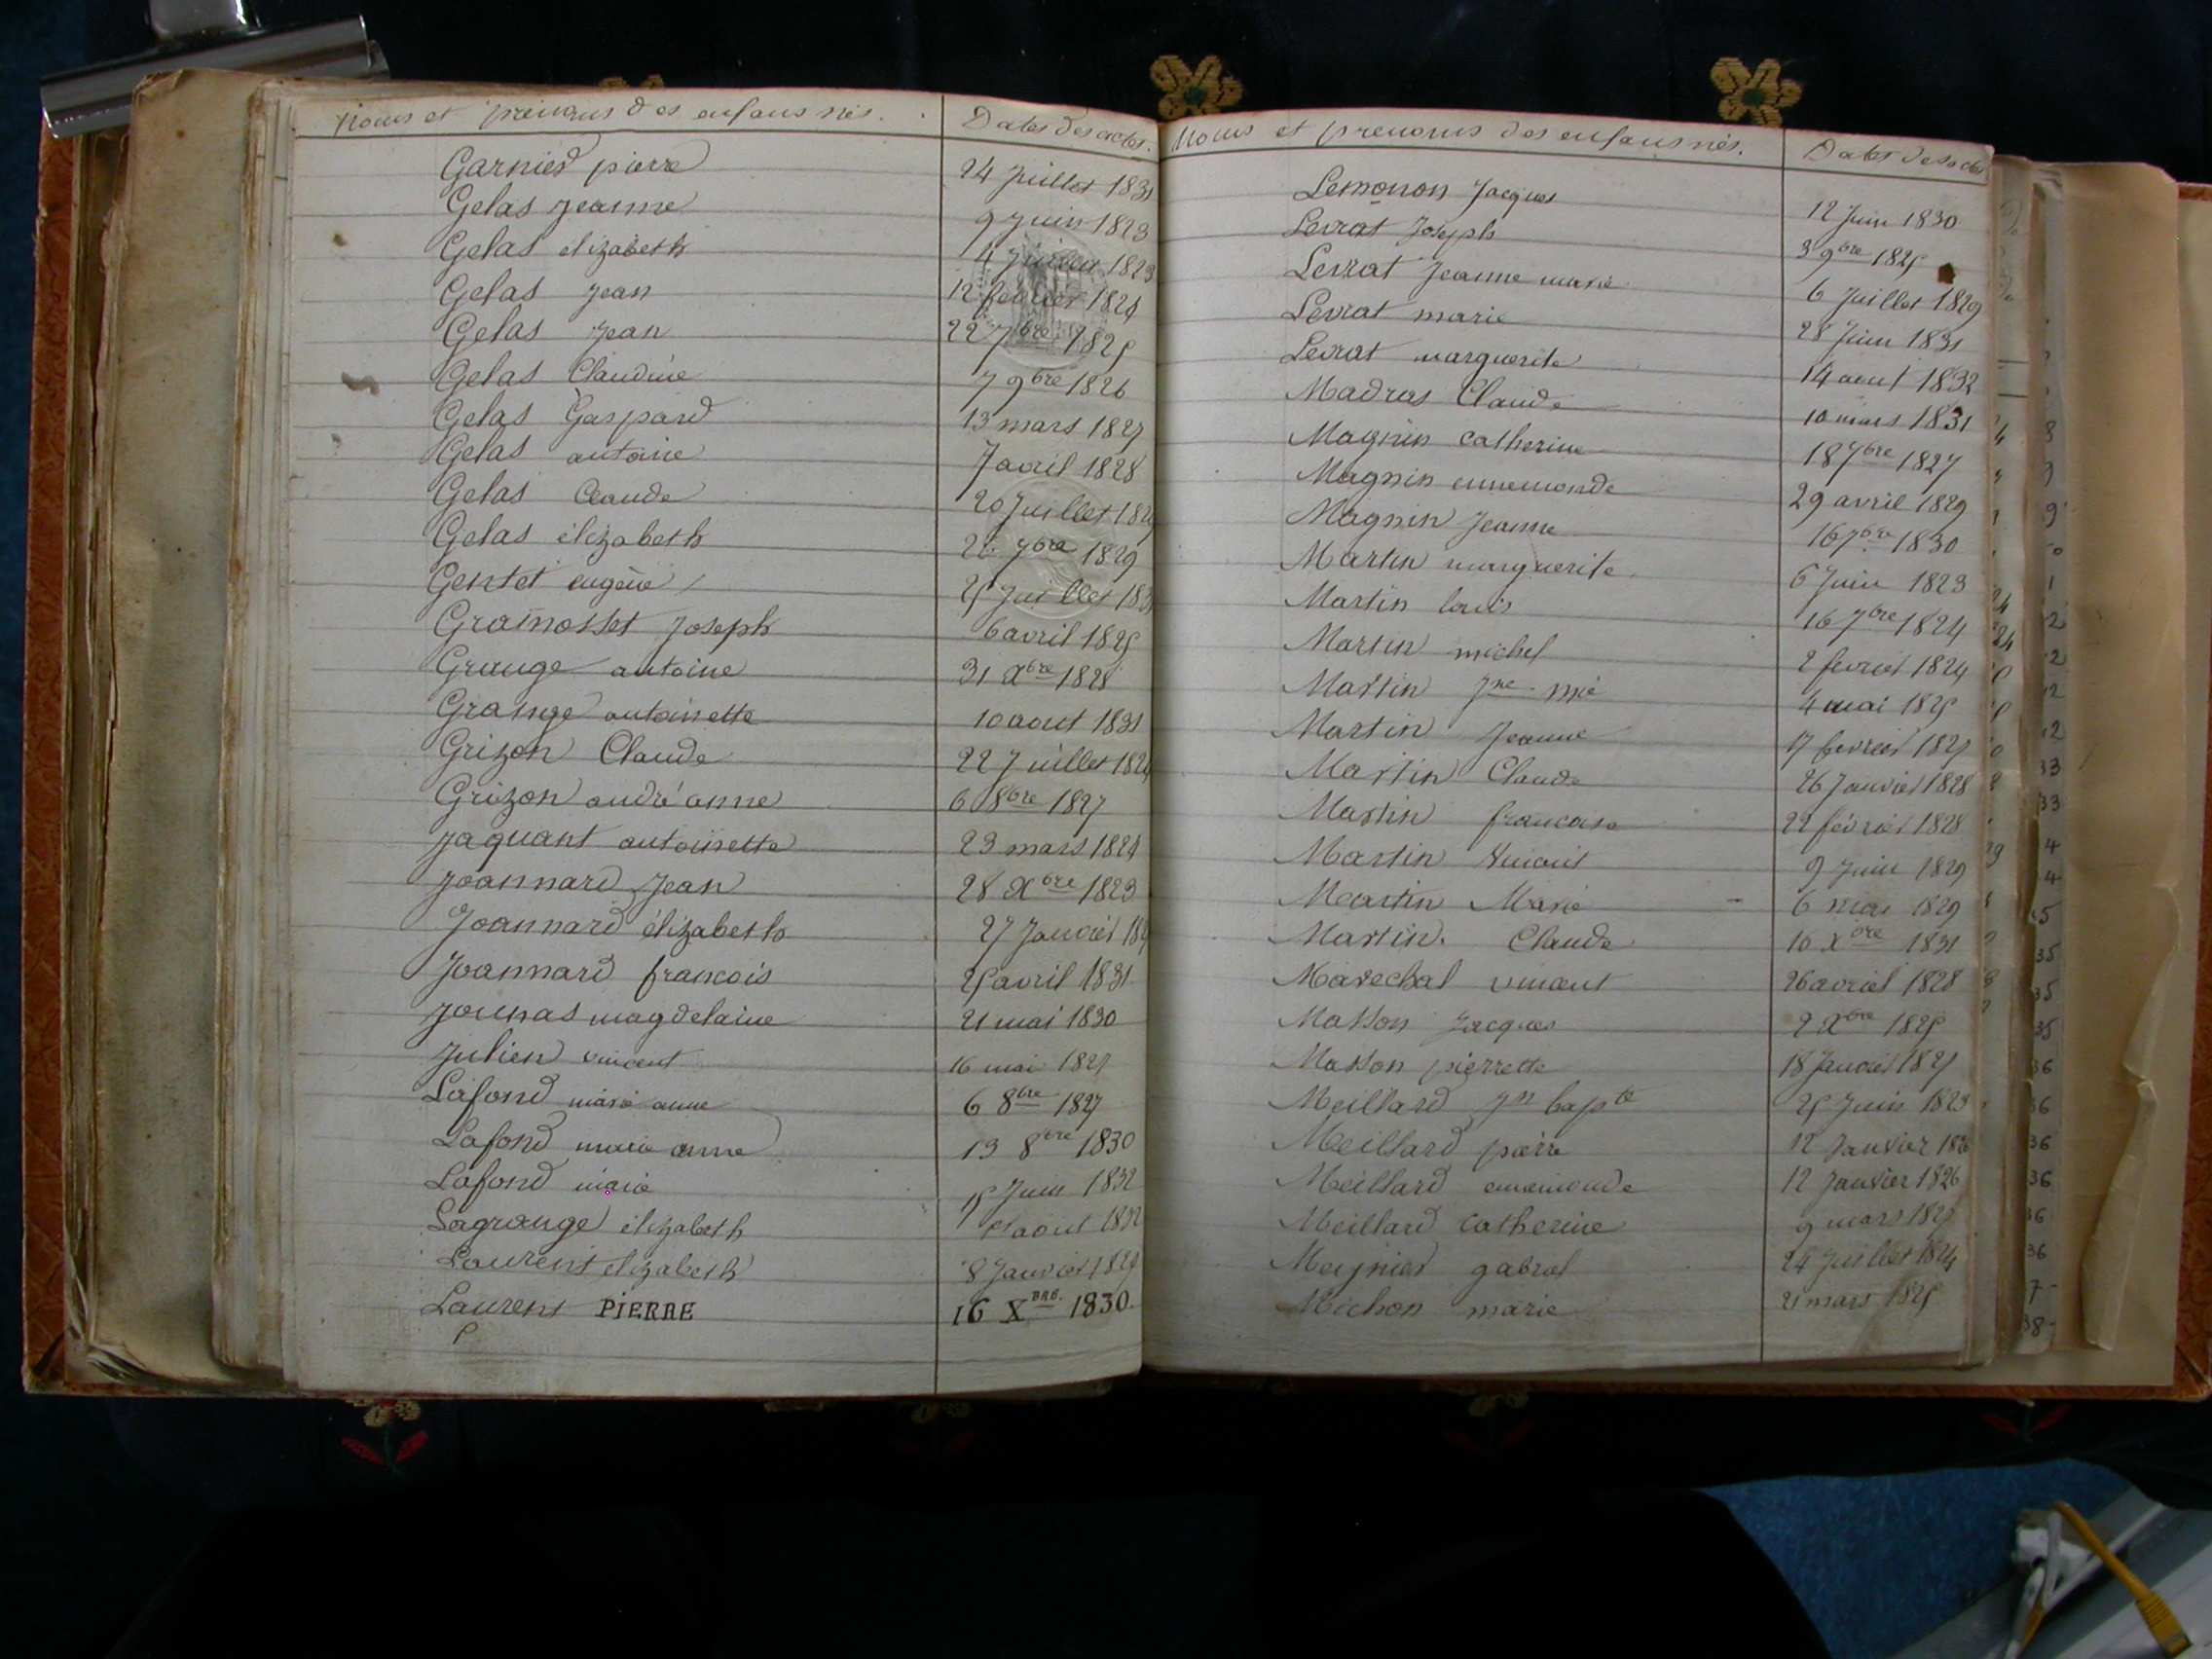 Noms et prenoms des enfans nés. Dates des actes.
Garnier pierre 24 Juillet 1831
Gelas Jeanne 9 Juin 1823
Gelas elizabeth 1823
Gelas Jean 12 fevrier 1824
Gelas Jean 22 7bre 1825
Gelas Claudine 7 9bre 1826
Gelas Gaspard 13 mars 1827
Gelas antoine 7 avril 1828
Gelas Claude 20 Juillet
Gelas élizabeth 7bre 1829
Gentet eugénie 25 Juillet
Gramosset Joseph 6 avril 1825
Grange antoine 31 Xbre 1828
Grange antoinette 10 aout 1831
Grizon Claude 22 Juillet 1824
Grizon andré anne 6 8bre 1827
Jaquant antoinette 23 mars 1824
Joannard Jean 28 Xbre 1823
Joannard élizabeth 27 Janvier
Joannard francois 25 avril 1831
Jounas magdelaine 21 mai 1830
Julien vincent 16 mai 1827
Lafond marie anne 6 8bre 1827
Lafond marie anne 13 8bre 1830
Lafond marie 15 Juin 1832
Lagrange élizabeth aout 1832
Laurent elizabeth 8 Janvier 1829
Laurent PIERRE 16 XBRE. 1830.
Noms et prenoms des enfans nés. Dates des actes
Lemonon Jacques 12 Juin 1830
Levrat Joseph 3 9bre 1825
Levrat Jeanne marie 6 Juillet 1829
Levrat marie 28 Juin 1831
Levrat marguerite 14 aout 1832
Madras Claude 10 mars 1831
Magnin catherine 18 7bre 1827
Magnin ennemonde 29 avril 1829
Magnin Jeanne 16 7bre 1830
Martin marguerite 6 Juin 1823
Martin louis 16 7bre 1824
Martin michel 2 fevrier 1824
Martin Jne mie 4 mai 1825
Martin Jeanne 17 fevrier 1827
Martin Claude 26 Janvier 1828
Martin francoise 22 février 1828
Martin 9 Juin 1829
Martin Marie 6 mai 1829
Martin. Claude 10 Xbre 1831
Marechal vincent 26 avriel 1828
Masson Jacques 2 Xbre 1825
Masson pierrette 18 Janvier 1827
Meillard Jn bapte 25 Juin 1823
Meillard pierre 12 Janvier
Meillard ennemonde 12 Janvier 1826
Meillard Catherine 9 mars 1827
Meynier gabriel 24 Juillet 1824
Michon marie 21 mars 1825